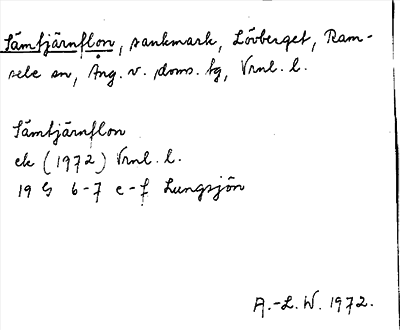 Sämtjärnflon, sankmark, Lövberget, Ram-
sele sn, Ång. v. doms. tg, Vrnl. l.
Sämtjärnflon
ek (1972) Vrnl. l.
19 G 6-7 e-f Lungsjön
A.-L. W. 1972.